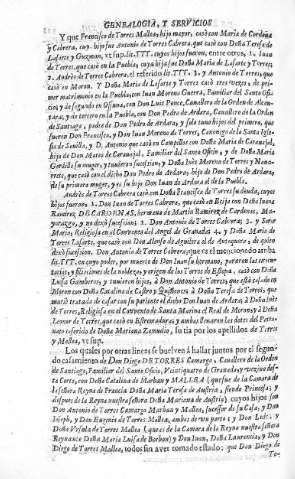 GENEALOGIA, Y SERVICIOS
Y que Francisco de Torres Mallea, hijo mayor, casò con Maria de Cordoua
y Cabrera, cuyo hijo fue Antonio de Torres Cabrera, que casò con Doña Teresa de
Lafarte y Guzman, vt sup. lit. TTT. cuyos hijos fueron, entre otros, 1. Juan de
Torres, que casò en la Puebla, cuya hija fue Doña Maria de Lafarte y Torres.
2. Andrès de Torres Cabrera, el referido lit. TTT. 3. y Antonio de Torres, que
casò en Moron. Y Doña Maria de Lafarte y Torres casò tres vezes, de primer
matrimonio en la Puebla, con Iuan Moreno Guerra, Familiar del Santo Oficio;
y de segundo en Ossuna, con Don Luis Ponce, Cauallero de la Orden de Alcantara,
y de tercero en la Puebla, con Don Pedro de Ardara, Cauallero de la Orden
de Santiago, padre de Don Pedro de Ardara, y solo tuuo hijos del primero, que
fueron Don Francisco, y Don Iuan Moreno de Torres, Canonigo de la Santa Iglesia
de Seuilla, y D. Antonio que casò en Campillos con Doña Maria de Caruajal,
hija de Don Mateo de Caruajal, Familiar del Santo Oficio, y de Doña Maria
su muger, y tambien sucession; y Doña Inès Moreno de Torres y
que casò con el dicho Don Pedro de Ardara, hijo de Don Pedro de Ardara,
de su primera muger, y es su hijo Don Iuan de Ardara el de la Puebla.
Andrès de Torres Cabrera casò con Doña Francisca de Torres su deuda, cuyos
hijos fueron, 1. Don Iuan de Torres Cabrera, que casò en con Doña Iuana
Ramirez DE CARDENAS, hermana de Martin Ramirez de Cardenas,
y no dexò sucession; 2. Don Antonio de Torres Cabrera; 3. y Sor
Maria, Religiosa en el Conuento del Angel de Granada; 4. y Doña Maria de
Torres Lafarte, que casò con Don Alonso de Aguilera el de Antequera, de quien
dexò sucession. Don Antonio de Torres Cabrera, que es el mencionado arriba
lit. TTT. en cuyo poder, por muerte de Don Iuan su hermano,
de la nobleza, y origen de los Torres de Estepa, casò con Doña
Luisa Gamberos, y tuuieron hijos, à Don Antonio de Torres, que està casado en
Moron con Doña Catalina de Castro y à Doña Teresa de Torres, que
murió tratada de casar con su pariente el dicho Don Iuan de Ardara; à Doña Inès
de Torres, Religiosa en el Conuento de Santa Marina el Real de Moron; y à Doña
Leonor de Torres, que casò en
Mariana su tia por los apellidos de Torres
y Mallea, vt sup.
Los quales por otras lineas se bueluen à hallar juntos por el segundo
casamiento de Don Diego DE TORRES Camargo, Cauallero de la Orden
de Santiago, Familiar del Santo Oficio, Veintiquatro de Granada, y vezino desta
Corte, con Doña Catalina de Marban y MALLEA (que fue de la Camara de
Reyna de Francia Doña Maria Teresa de Austria, siendo Princesa; y
despues de la Reyna nuestra señora Doña Mariana de Austria) cuyos hijos son
Don Antonio de Torres Camargo Marban y Mallea, sucessor de su Casa, y Don
Ioseph, y Don Eugenio de Torres Mallea, ambos de vn parto; y Don
Doña Vitoria de Torres Mallea (que es de la Camara de la Reyna nuestra señora
Reynante Doña Maria Luisa de Borbon) y Don Iuan, Doña Laurencia, y Don
Diego de Torres Mallea, todos sin auer tomado estado: que Don Diego de
To-